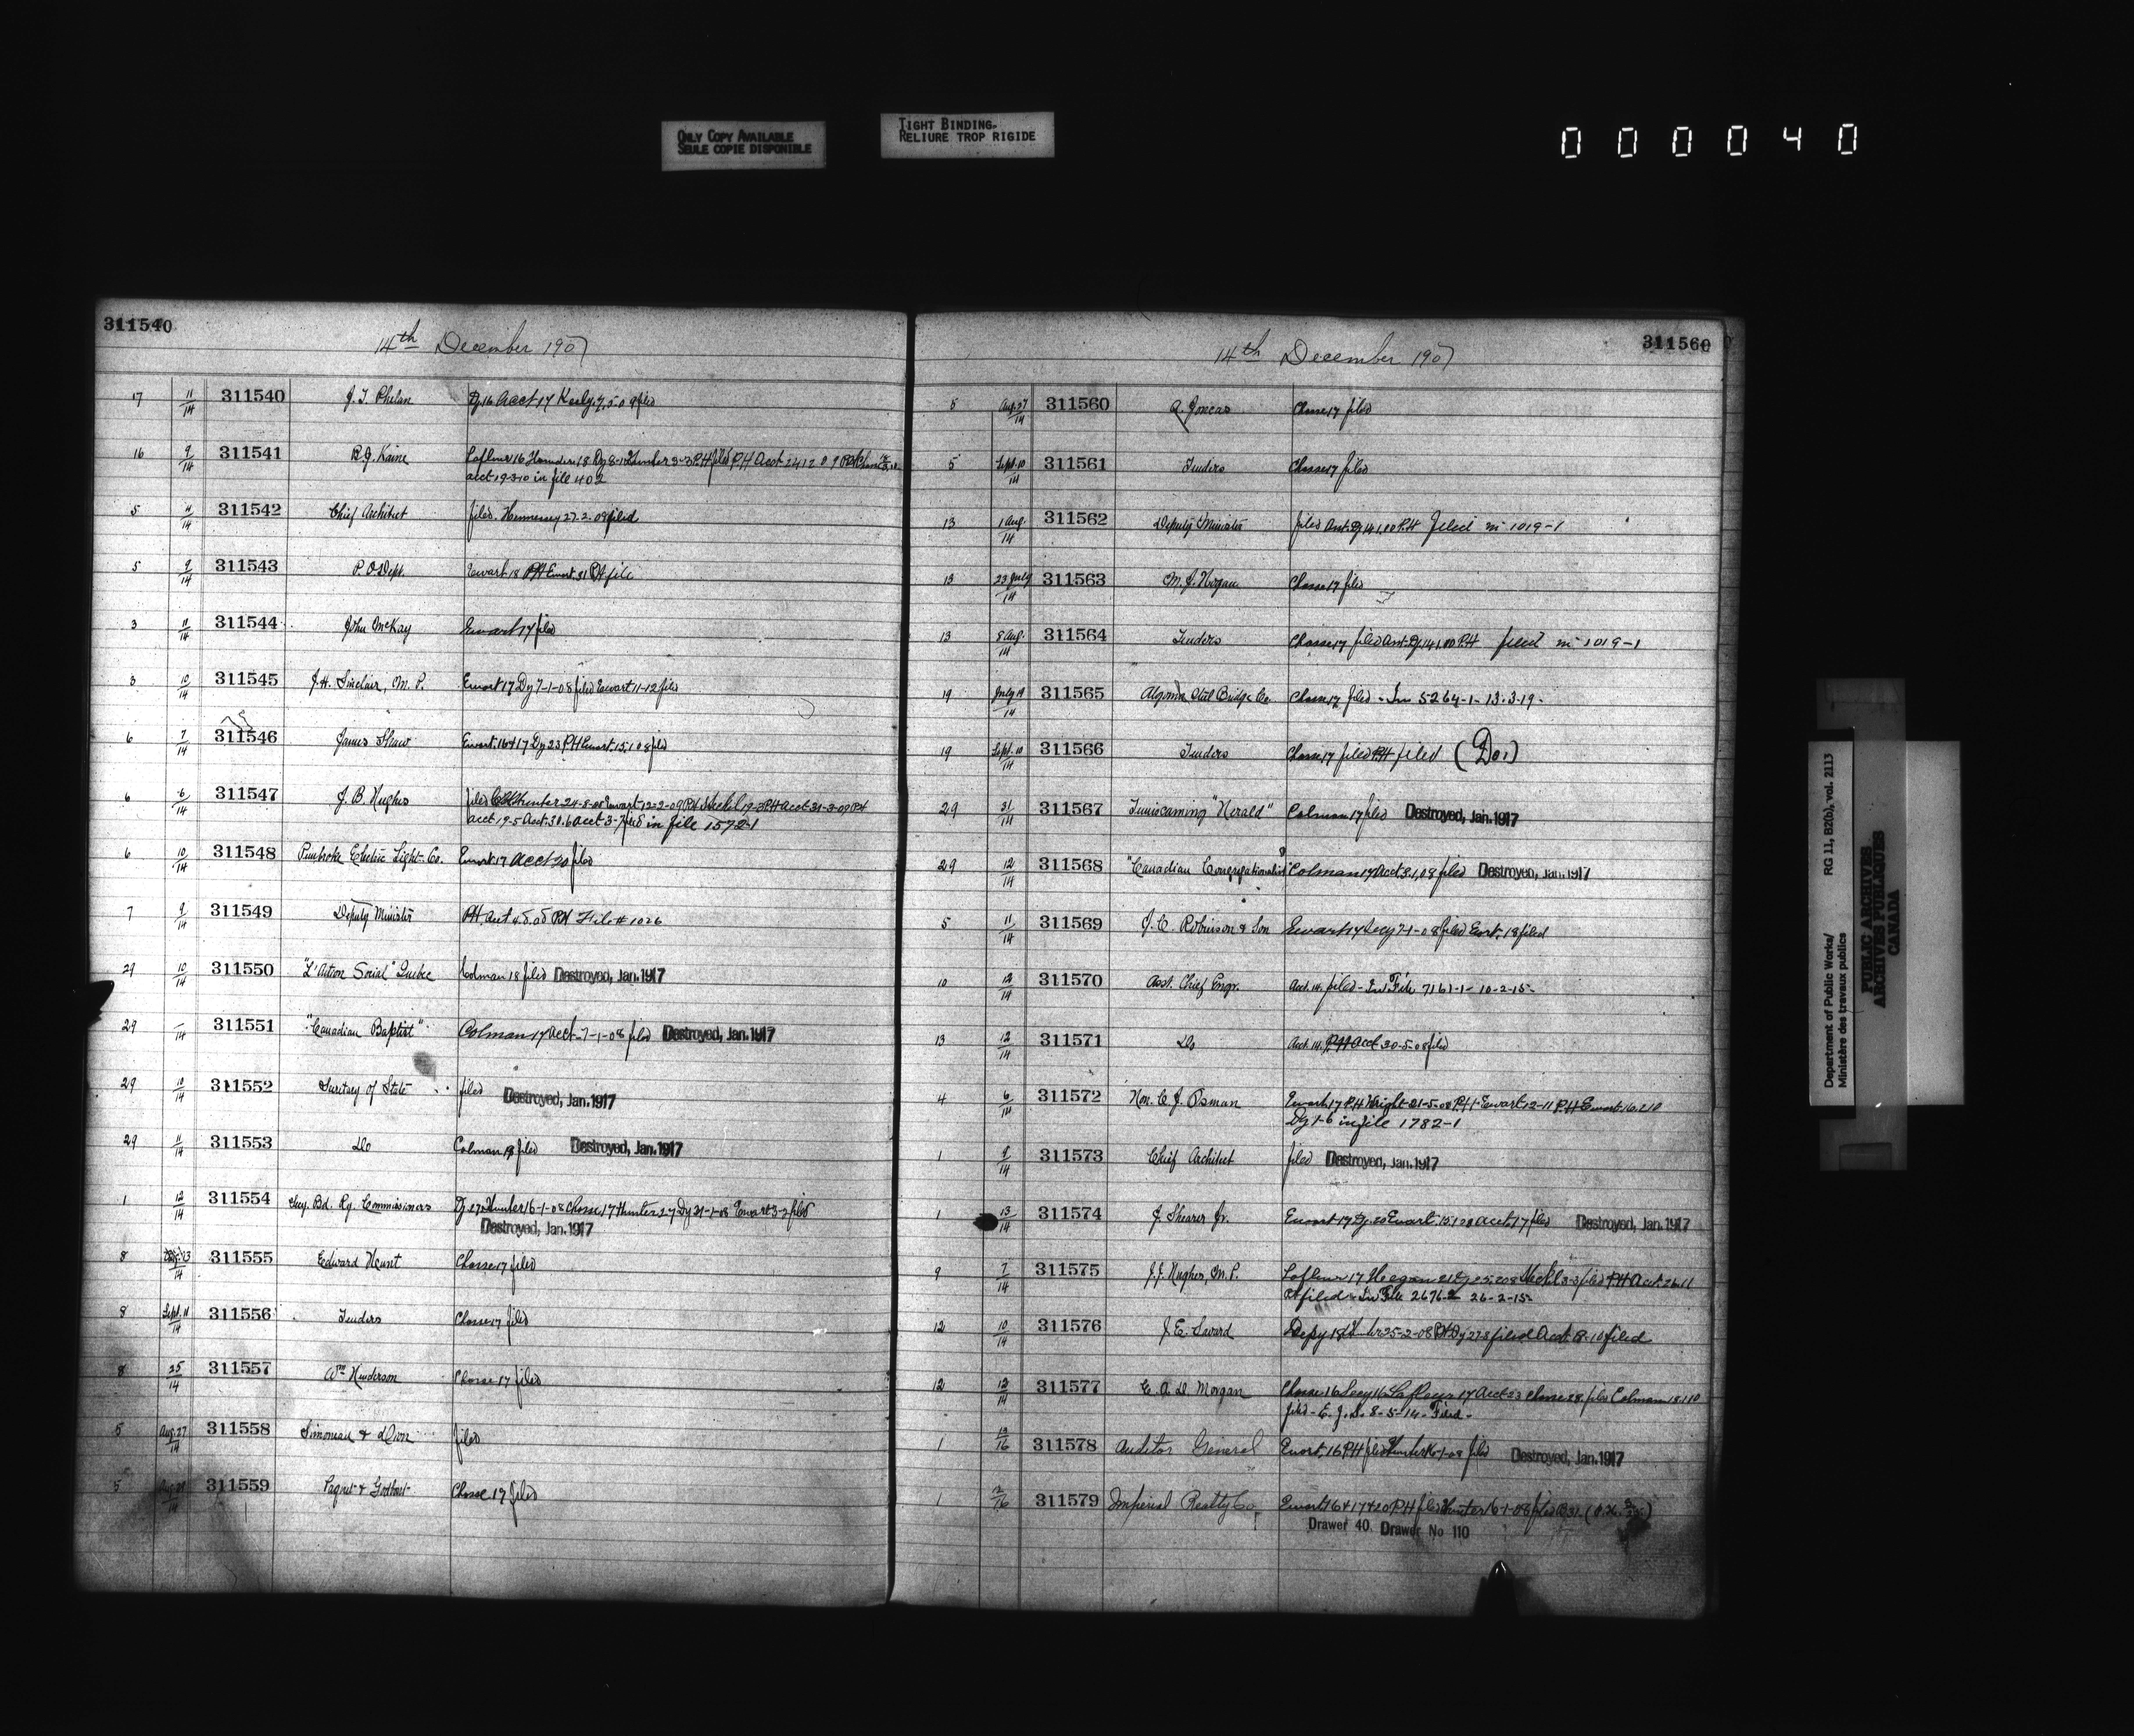 ONLY COPY AVAILABLE
SEULE COPIE DISPONIBLE
TIGHT BINDING.
RELIURE TROP RIGIDE
000040
311540
14th December 1907
17 11/14 311540 J. T. Phelan Dy 16 Acct 17 filed
16 9/14 311541 B. J. Kaine Lafleur 16
acct 19-3-10 in file 402
5 11/14 311542 Chief Architect filed. Hennessey 27-2-09 filed
5 9/14 311543 P. O. Dept. Ewart 18 PH Ewart 31 PH file
3 11/14 311544 John McKay Ewart 17 filed
3 10/14 311545 J. H. Sinclair, M. P. Ewart 17 Dy 7-1-08 filed Ewart 11-12 filed
6 7/14 311546 James Shaw Ewart 16+17 Dy 23 PH Ewart 15-1-08 filed
6 6/14 311547 J. B. Hughes filed
acct 19-5 Acct 30.6 acct 3-7 filed in file 1572-1
6 10/14 311548 Pembroke Electric Light Co. Ewart 17 Acct 20 filed
7 9/14 311549 Deputy Minister PH File # 1026
29 10/14 311550 "L'Action Social" Quebec Colman 18 filed Destroyed, Jan. 1917
29 –/14 311551 "Canadian Baptist" Colman 17 Acct 7-1-08 filed Destroyed, Jan. 1917
29 10/14 311552 Secretary of State filed Destroyed, Jan. 1917
29 11/14 311553 Do Colman 18 filed Destroyed, Jan. 1917
1 12/14 311554 Secy. Bd. Ry. Commissioners Hunter 16-1-08 Chasse 17 Hunter 27 Dy 31-1-08 Ewart 3-2 filed
Destroyed, Jan. 1917
8 311555 Edward Hunt Chasse 17 filed
8 Sept. 11/14 311556 Tenders Chasse 17 filed
8 25/14 311557 Wm Henderson Chasse 17 filed
5 Aug. 27/14 311558 Simoneau & Dion filed
5 311559 Paquet & Godbout Chasse 17 filed
311560
14th December 1907
5 Aug. 27/14 311560 Joncas Chasse 17 filed
5 Sept. 10/14 311561 Tenders Chasse 17 filed
13 1 Aug./14 311562 Deputy Minister filed PH filed in 1019-1
13 23 July/14 311563 M. J. Hogan Chasse 17 filed
13 8 Aug./14 311564 Tenders Chasse 17 filed PH filed in 1019-1
19 July 19/14 311565 Algoma Steel Bridge Co. Chasse 17 filed - In 5264-1- 13-3-19-
19 Sept. 10/14 311566 Tenders Chasse 17 filed PH filed (Do.)
29 31/14 311567 Temiscaming "Herald" Colman 17 filed Destroyed, Jan. 1917
29 12/14 311568 "Canadian Congregationalist" Colman 17 Acct 31,08 filed Destroyed, Jan. 1917
5 11/14 311569 J. C. Robinson & Son Ewart 17 Secy 7-1-08 filed Ewart 18 filed
10 12/14 311570 Asst. Chief Engr. Acct. 14. filed - In File 7161-1- 10-2-15-
13 12/14 311571 Do Acct. 14. PH Acct 30-5-08 filed
4 6/14 311572 Hon. C. J. Osman Ewart 17 PH Wright 21-5-08 PH Ewart 12-11 PH Ewart 16.2.10
Dy 1-6 in file 1782-1
1 9/14 311573 Chief Architect filed Destroyed, Jan. 1917
1 13/14 311574 J. Shearer Jr. Ewart 17 Dy 20 Ewart 15.1.08 acct. 17 filed Destroyed, Jan. 1917
9 7/14 311575 J. J. Hughes, M. P. Lafleur 17 filed PH Acct 26-11
filed - In File 2676-2 26-2-15-
12 10/14 311576 J. E. Savard Depy 18 25-2-08 filed Acct 8-10 filed
12 12/14 311577 E. A. D. Morgan Chasse 16 Secy 16 Lafleur 17 Acct 23 Chasse 28 filed Colman 18.1.10
filed - E. J. S. 8-5-14- Filed -
1 13/16 311578 Auditor General Ewart, 16 PH filed Hunter 16-1-08 filed Destroyed, Jan. 1917
1 311579 Imperial Realty Co. Ewart 16+17+20 PH filed Hunter 16-1-08 filed
Drawer 40. Drawer No 110
Department of Public Works/ RG 11, B2(b), vol. 2113
Ministère des travaux publics
PUBLIC ARCHIVES
ARCHIVES PUBLIQUES
CANADA